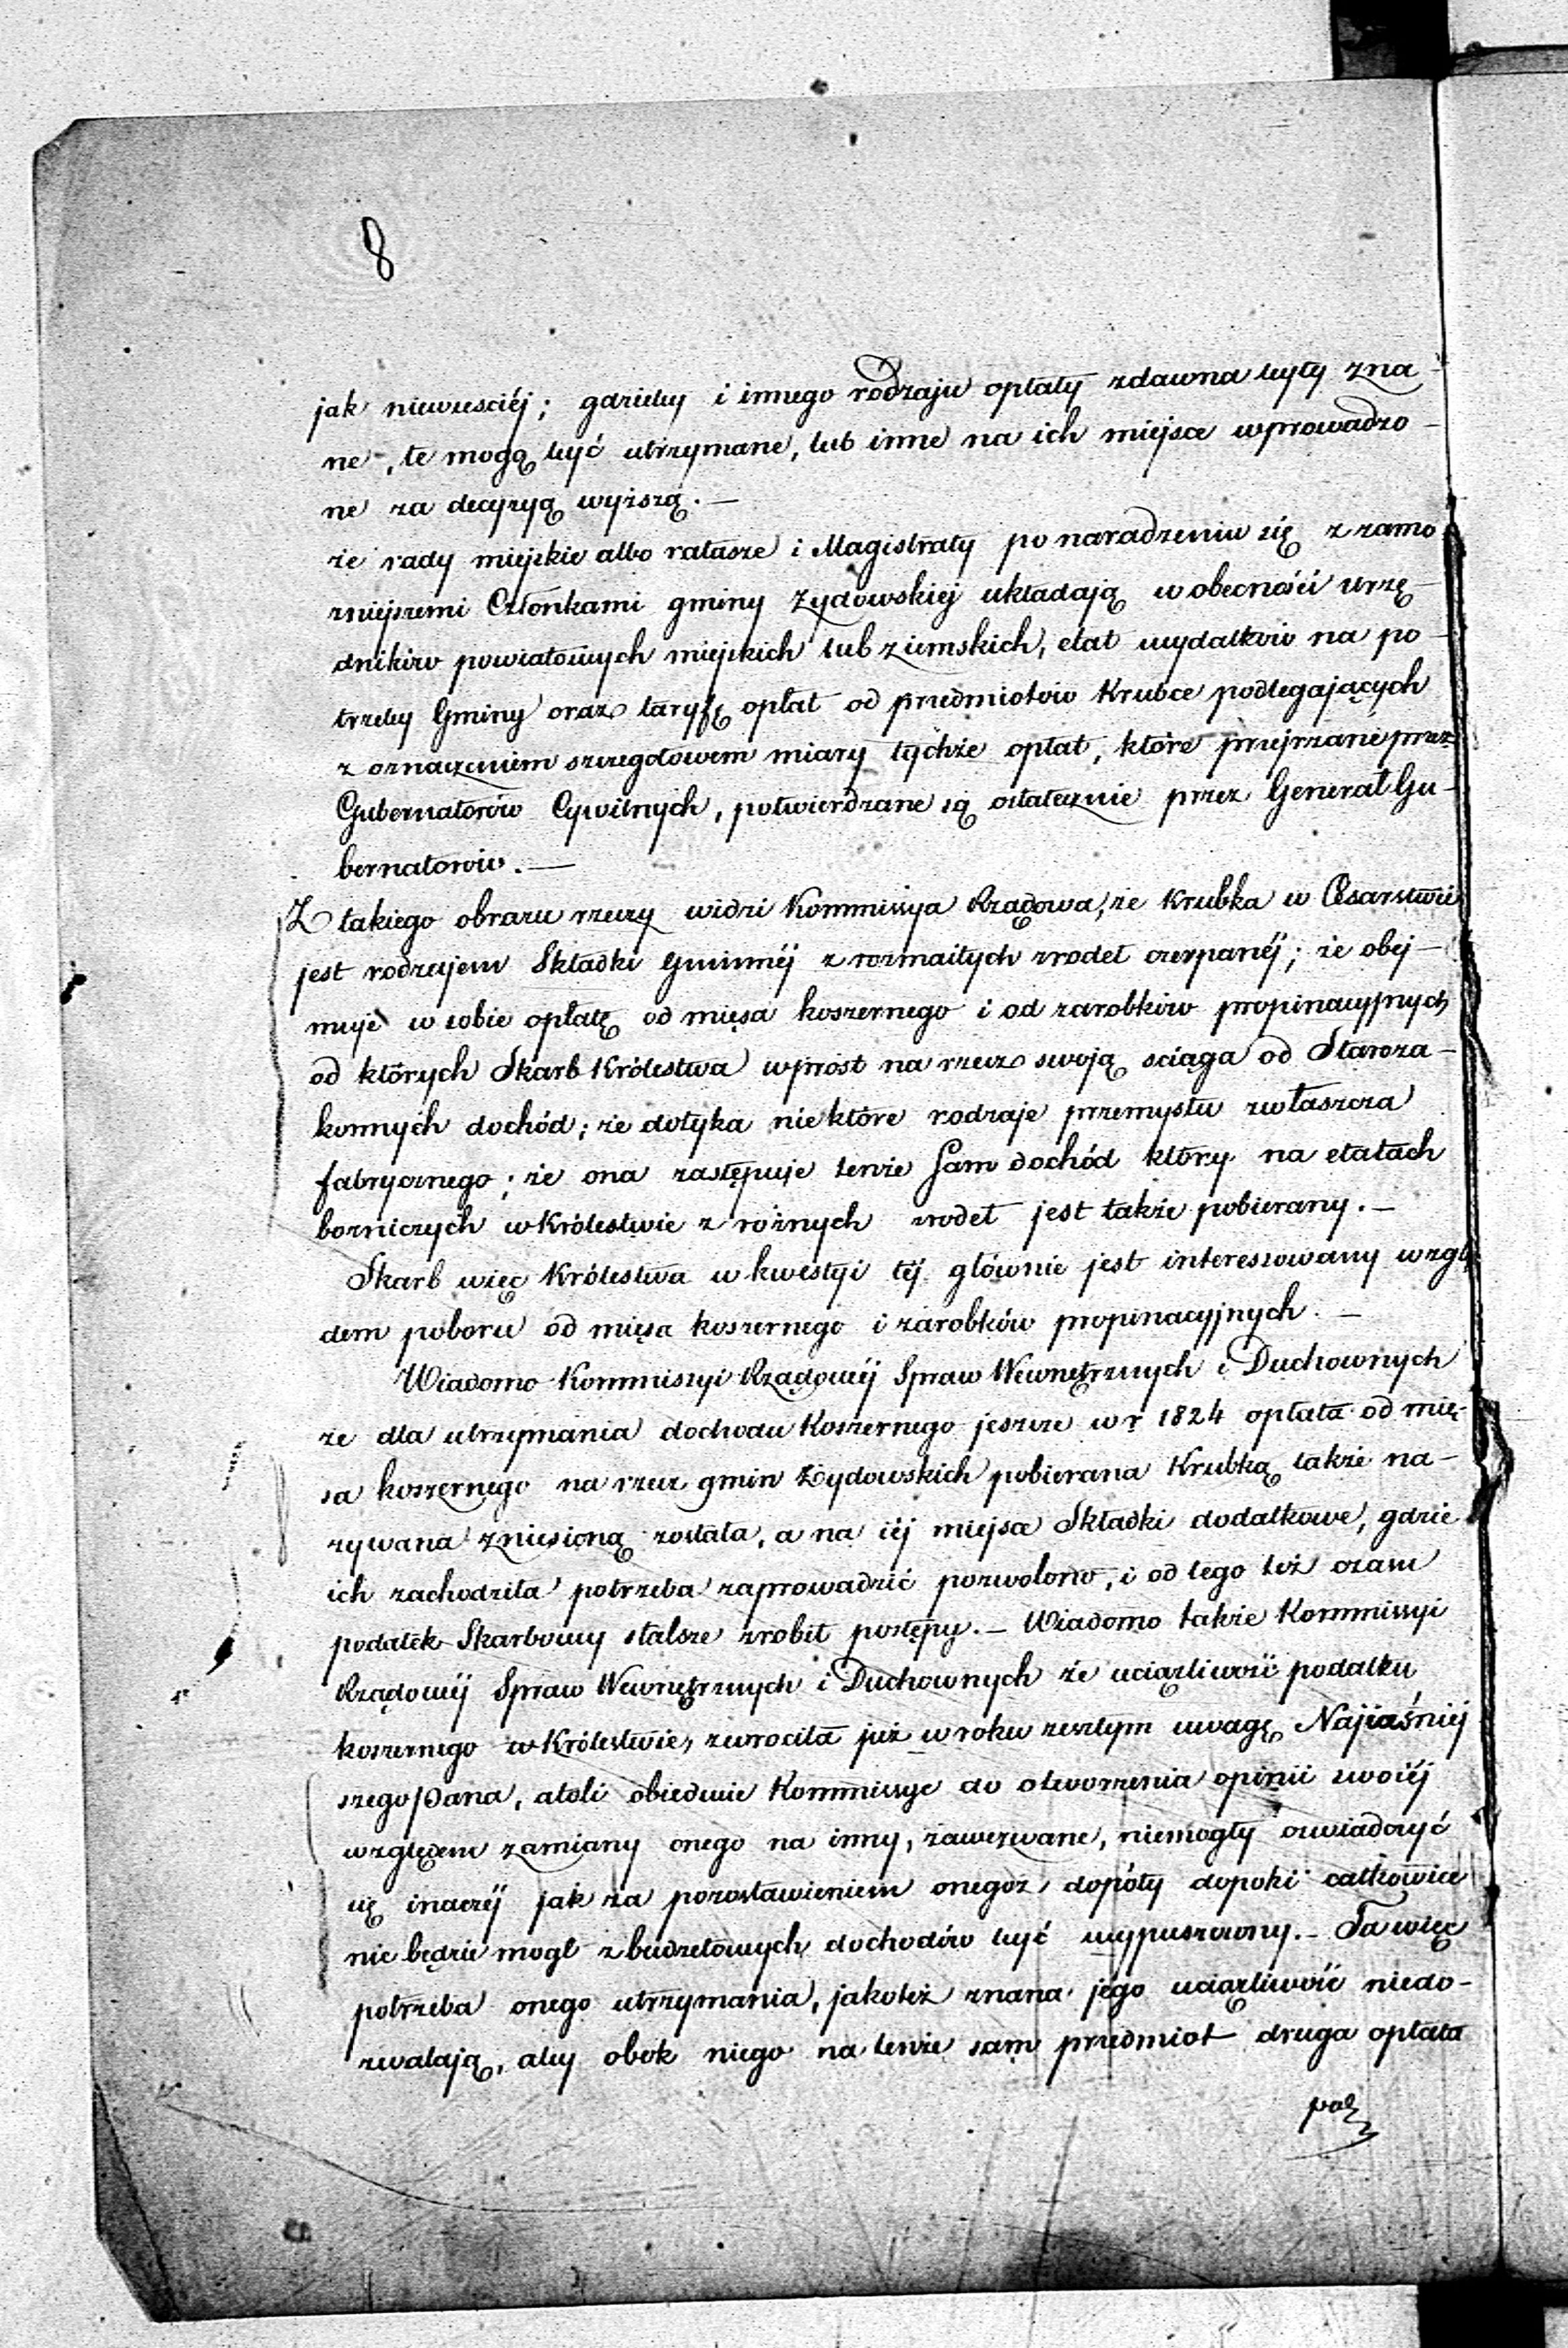 8
jak niewieściéj; gdzieby i innego rodzaju opłaty zdawna były zna-
ne, te mogą być utrzymane, lub inne na ich miejsce wprowadzo-
ne za decyzyą wyższą.—
że rady miejskie albo ratusze i Magistraty po naradzeniu się z zamo
żniejszemi Członkami gminy Żydowskiej układają w obecności urzę-
dników powiatowych miejskich lub ziemskich, etat wydatków na po-
trzeby Gminy oraz taryfę opłat od przedmiotów Krubce podlegających
z oznaczeniem szczegółowem miary tychże opłat, które przejrzane przez
Gubernatorów Cywilnych, potwierdzane są ostatecznie przez Generał Gu-
bernatorów.—
Z takiego obrazu rzeczy widzi Kommissya Rządowa, że Krubka w Cesarstwie
jest rodzajem Składki Gminnéj z rozmaitych zrodeł czerpanéj; że obej-
muje w sobie opłatę od mięsa koszernego i od zarobków propinacyjnych
od których Skarb Królestwa wprost na rzecz swoją sciąga od Staroza-
konnych dochód; że dotyka niektóre rodzaje przemysłu zwłaszcza
fabrycznego; że ona zastępuje tenże sam dochód który na etatach
bożniczych w Królestwie z rożnych zrodeł jest także pobierany.—
Skarb więc Królestwa w kwestyi téj głównie jest interessowany wzglę
dem poboru od mięsa koszernego i zarobków propinacyjnych.—
Wiadomo Kommissyi Rządowéj Spraw Wewnętrznych i Duchownych
że dla utrzymania dochodu Koszernego jeszcze w r 1824 opłata od mię-
sa koszernego na rzecz gmin Żydowskich pobierana Krubką także na-
zywana zniesioną została, a na iéj miejsce Składki dodatkowe, gdzie
ich zachodziła potrzeba zaprowadzić pozwolono, i od tego też czasu
podatek Skarbowy stalsze zrobił postępy.— Wiadomo także Kommissyi
Rządowéj Spraw Wewnętrznych i Duchownych że uciążliwość podatku
koszernego w Królestwie, zwrociła już w roku zeszłym uwagę Najiaśniej
szego Pana, atoli obiedwie Kommissye do otworzenia opinii swoiéj
względem zamiany onego na inny, zawezwane, niemogły oswiadczyć
się inaczéj jak za pozostawieniem onegoż, dopóty dopoki całkowicie
nie będzie mogł z budżetowych dochodów być wypuszczony.— Ta więc
potrzeba onego utrzymania, jakoteż znana jego uciążliwość niedo-
zwalają, aby obok niego na tenże sam przedmiot druga opłata